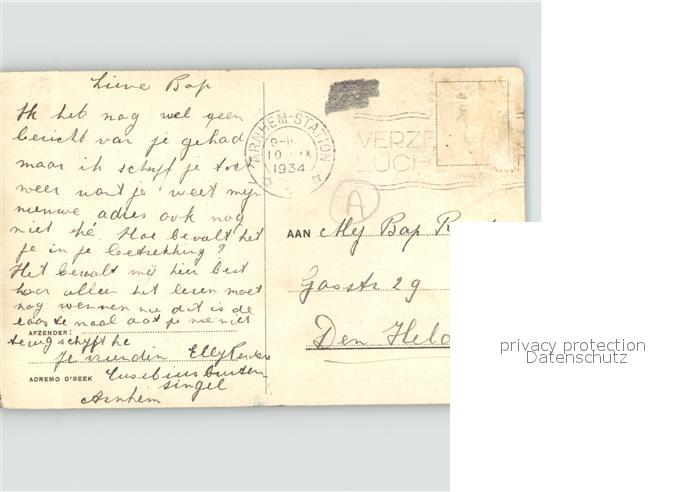 Lieve Bap
Ik heb nog wel geen
bericht van je gehad
maar ik schrijf je toch
weer want je weet mijn
nieuwe adres ook nog
niet hé. Hoe bevalt het
je in je betrekking?
Het bevalt mij hier best
hoor alleen het leren moet
nog wennen nu dit is de
niet
terug schrijft he
je vriendin Elly
Eusebius buiten
singel
Arnhem
AFZENDER:
ADREMO O'BEEK
ARNHEM-STATION
1934
VERZE
LUCH
A
AAN Mej Bap
Gasstr 29
Den Held
privacy protection
Datenschutz